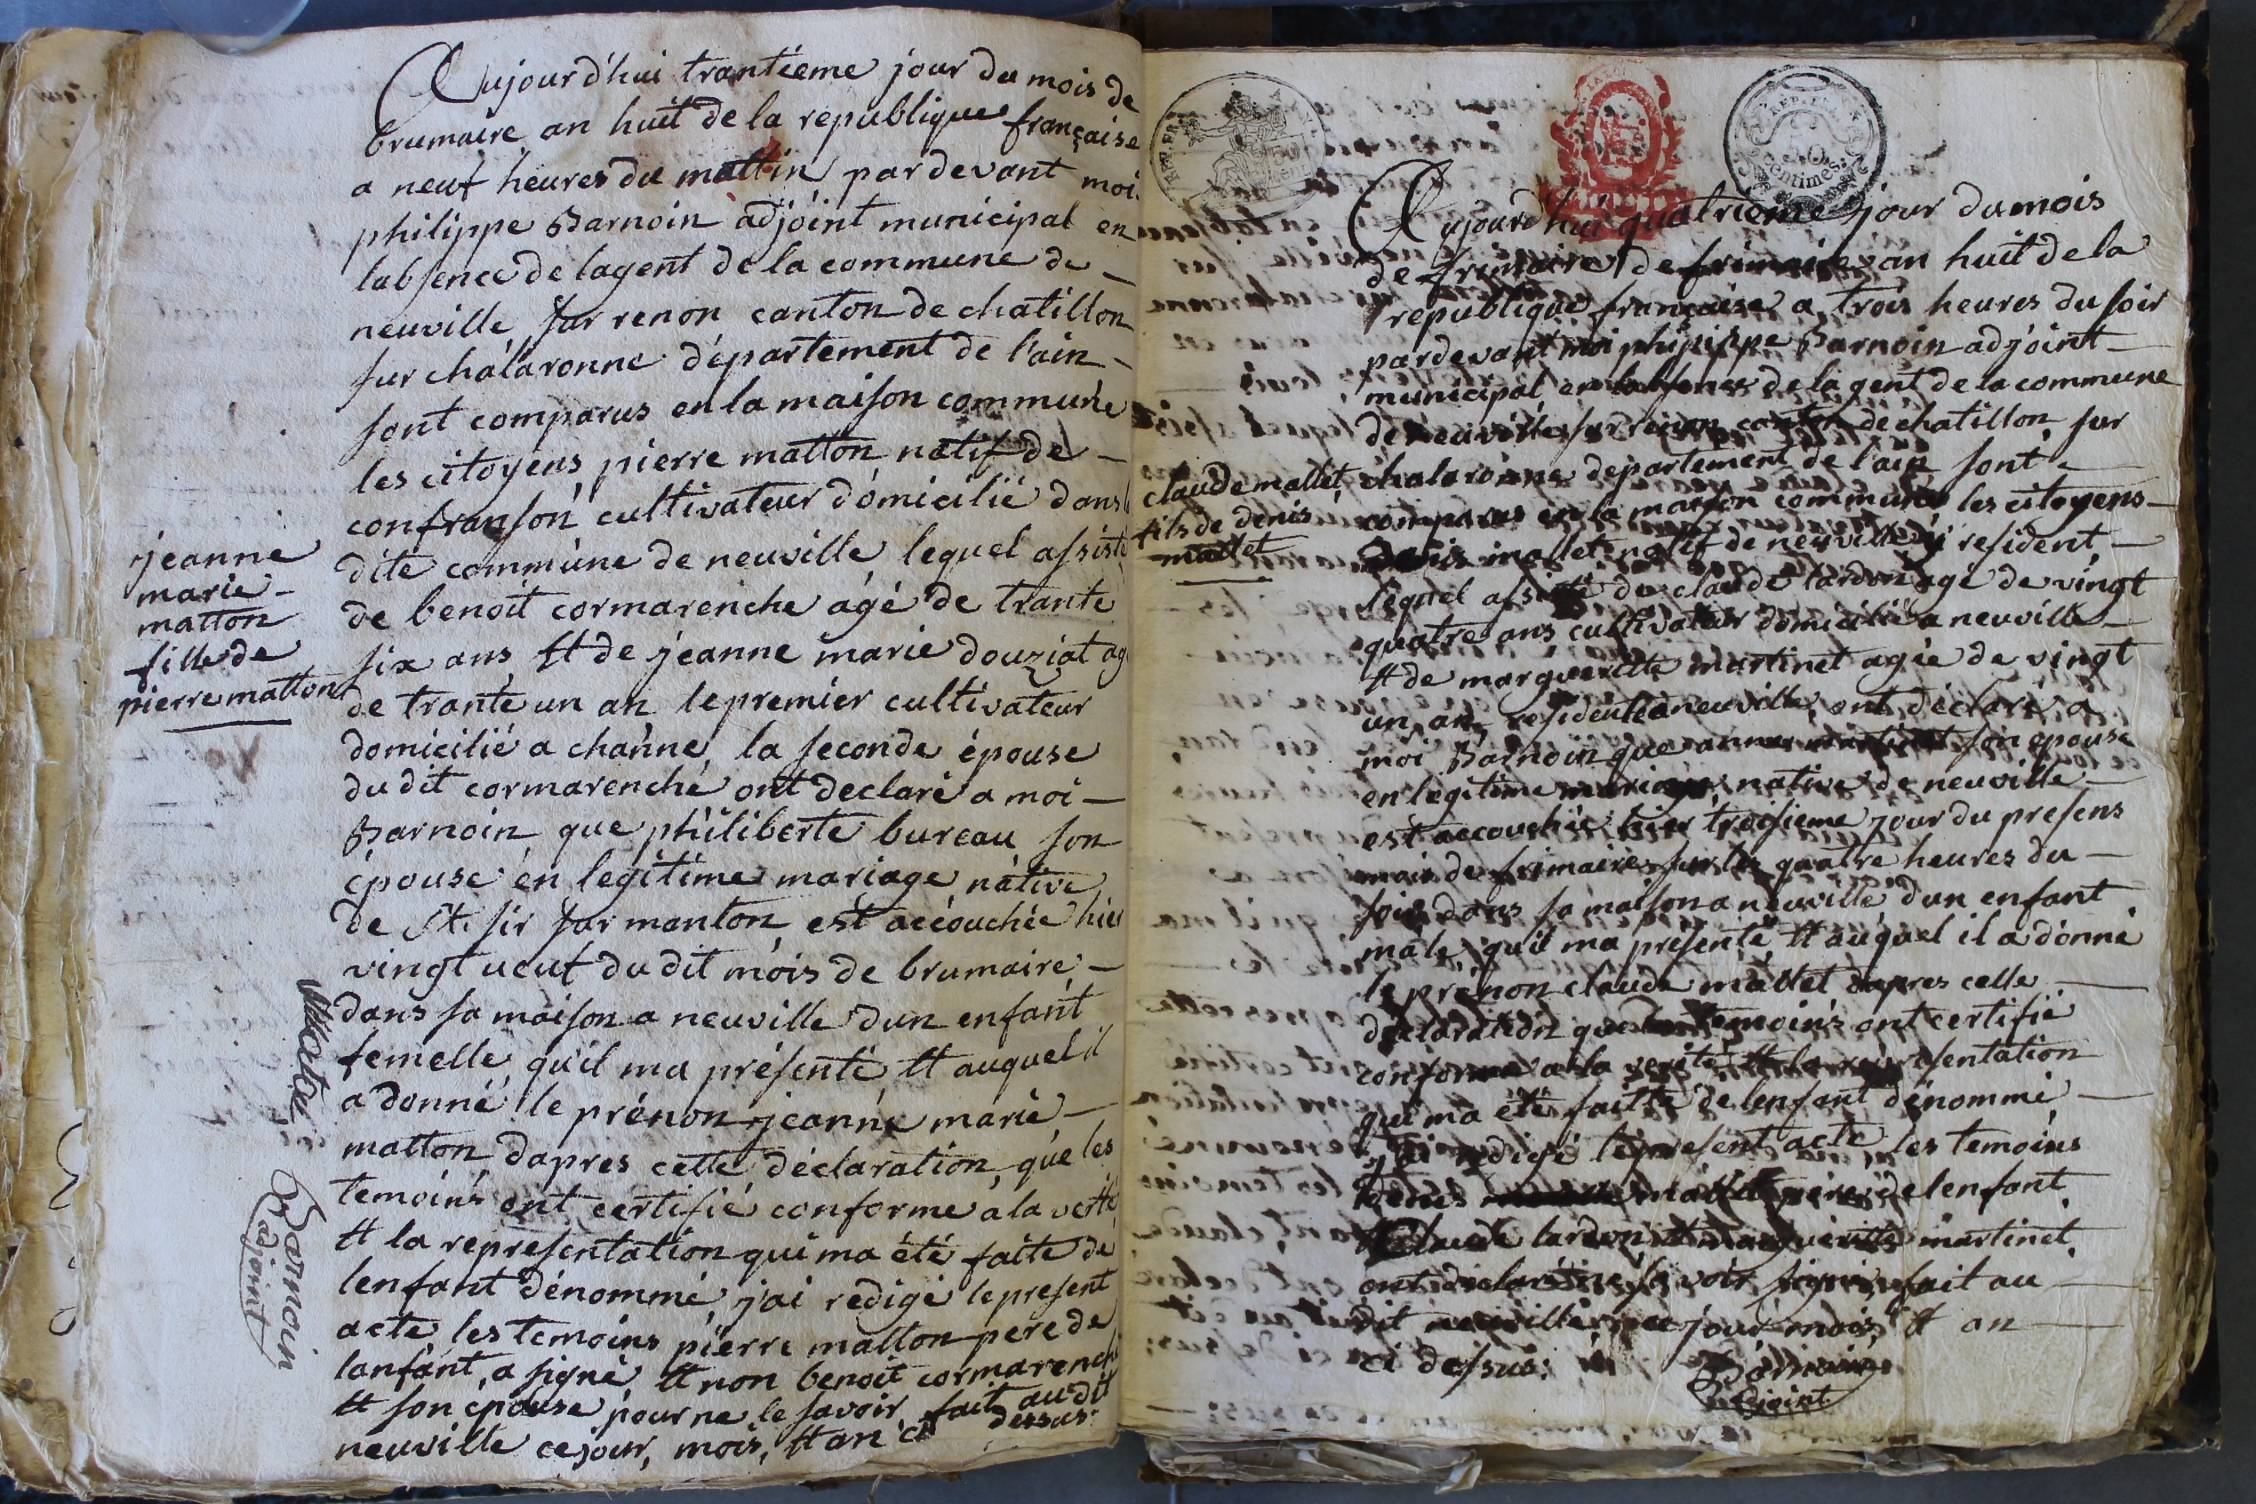 Aujourd'hui trantieme jour du mois de
brumaire an huit de la republique française
a neuf heures du mattin par devant moi
philippe Barnoin adjoint municipal en
labsence de lagent de la commune de
neuville sur renon canton de chatillon
sur chalaronne département de l'ain
sont comparus en la maison commune
les citoyens pierre matton natif de
confranson cultivateur domicilié dans
dite commune de neuville lequel assisté
de benoit cormarenche agé de trante
six ans et de jeanne marie douziat ag
de trante un an le premier cultivateur
domicilié a channe la seconde épouse
du dit cormarenche ont declaré a moi
Barnoin que philiberte bureau son
épouse en legitime mariage native
de St. sir sur manton est accouchée hier
vingt neuf du dit mois de brumaire
dans sa maison a neuville dun enfant
femelle qu'il ma présenté et auquel il
a donné le prénon jeanne marie
matton dapres cette déclaration que les
temoins ont certifié conforme a la verité
et la representation qui ma été faite de
lenfant dénommé j'ai redigé le present
acte les temoins pierre matton pere de
lanfant, a signé et non benoit cormarench
et son épouse pour ne le savoir fait au dit
neuville ce jour, mois, et an ci dessus
jeanne
marie
matton
fille de
pierre matton
Barnoin
adjoint
REP. FRA.
50
centimes
Aujourd'hui quatrieme jour du mois
de frimaire de frimaire an huit de la
republique française a trois heures du soir
pardevant moi phipippe Barnoin adjoint
municipal en labsence de lagent de la commune
de neuville sur renon canton de chatillon sur
chalaronne departement de l'ain sont
comparus en la maison commune les citoyens
Denis mallet natif de neuville i resident
lequel assisté de claude lardon agé de vingt
quatre ans cultivateur domicilié a neuville
et de marguerite martinet agée de vingt
un an, residente a neuville ont déclaré a
moi Barnoin que anne martinet son épouse
en legitime mariage native de neuville
est accouchée hier troisieme jour du presens
mois de frimaire sur les quatre heures du
soir dans sa maison a neuville dun enfant
male, qu'il ma présenté et auquel il a donné
le prénon claude mallet dapres celle
declaration que les temoins ont certifié
conforme a la verité et la representation
qui ma été faitte de lenfant dénommé
j'ai redigé le present acte les temoins
denis mallet pere de lenfant
claude lardon et margueritte martinet
ont déclaré ne savoir signer fait au
dit neuville ce jour mois et an
ci dessus:
Barnoin
adjoint
claude mallet
fils de denis
mallet